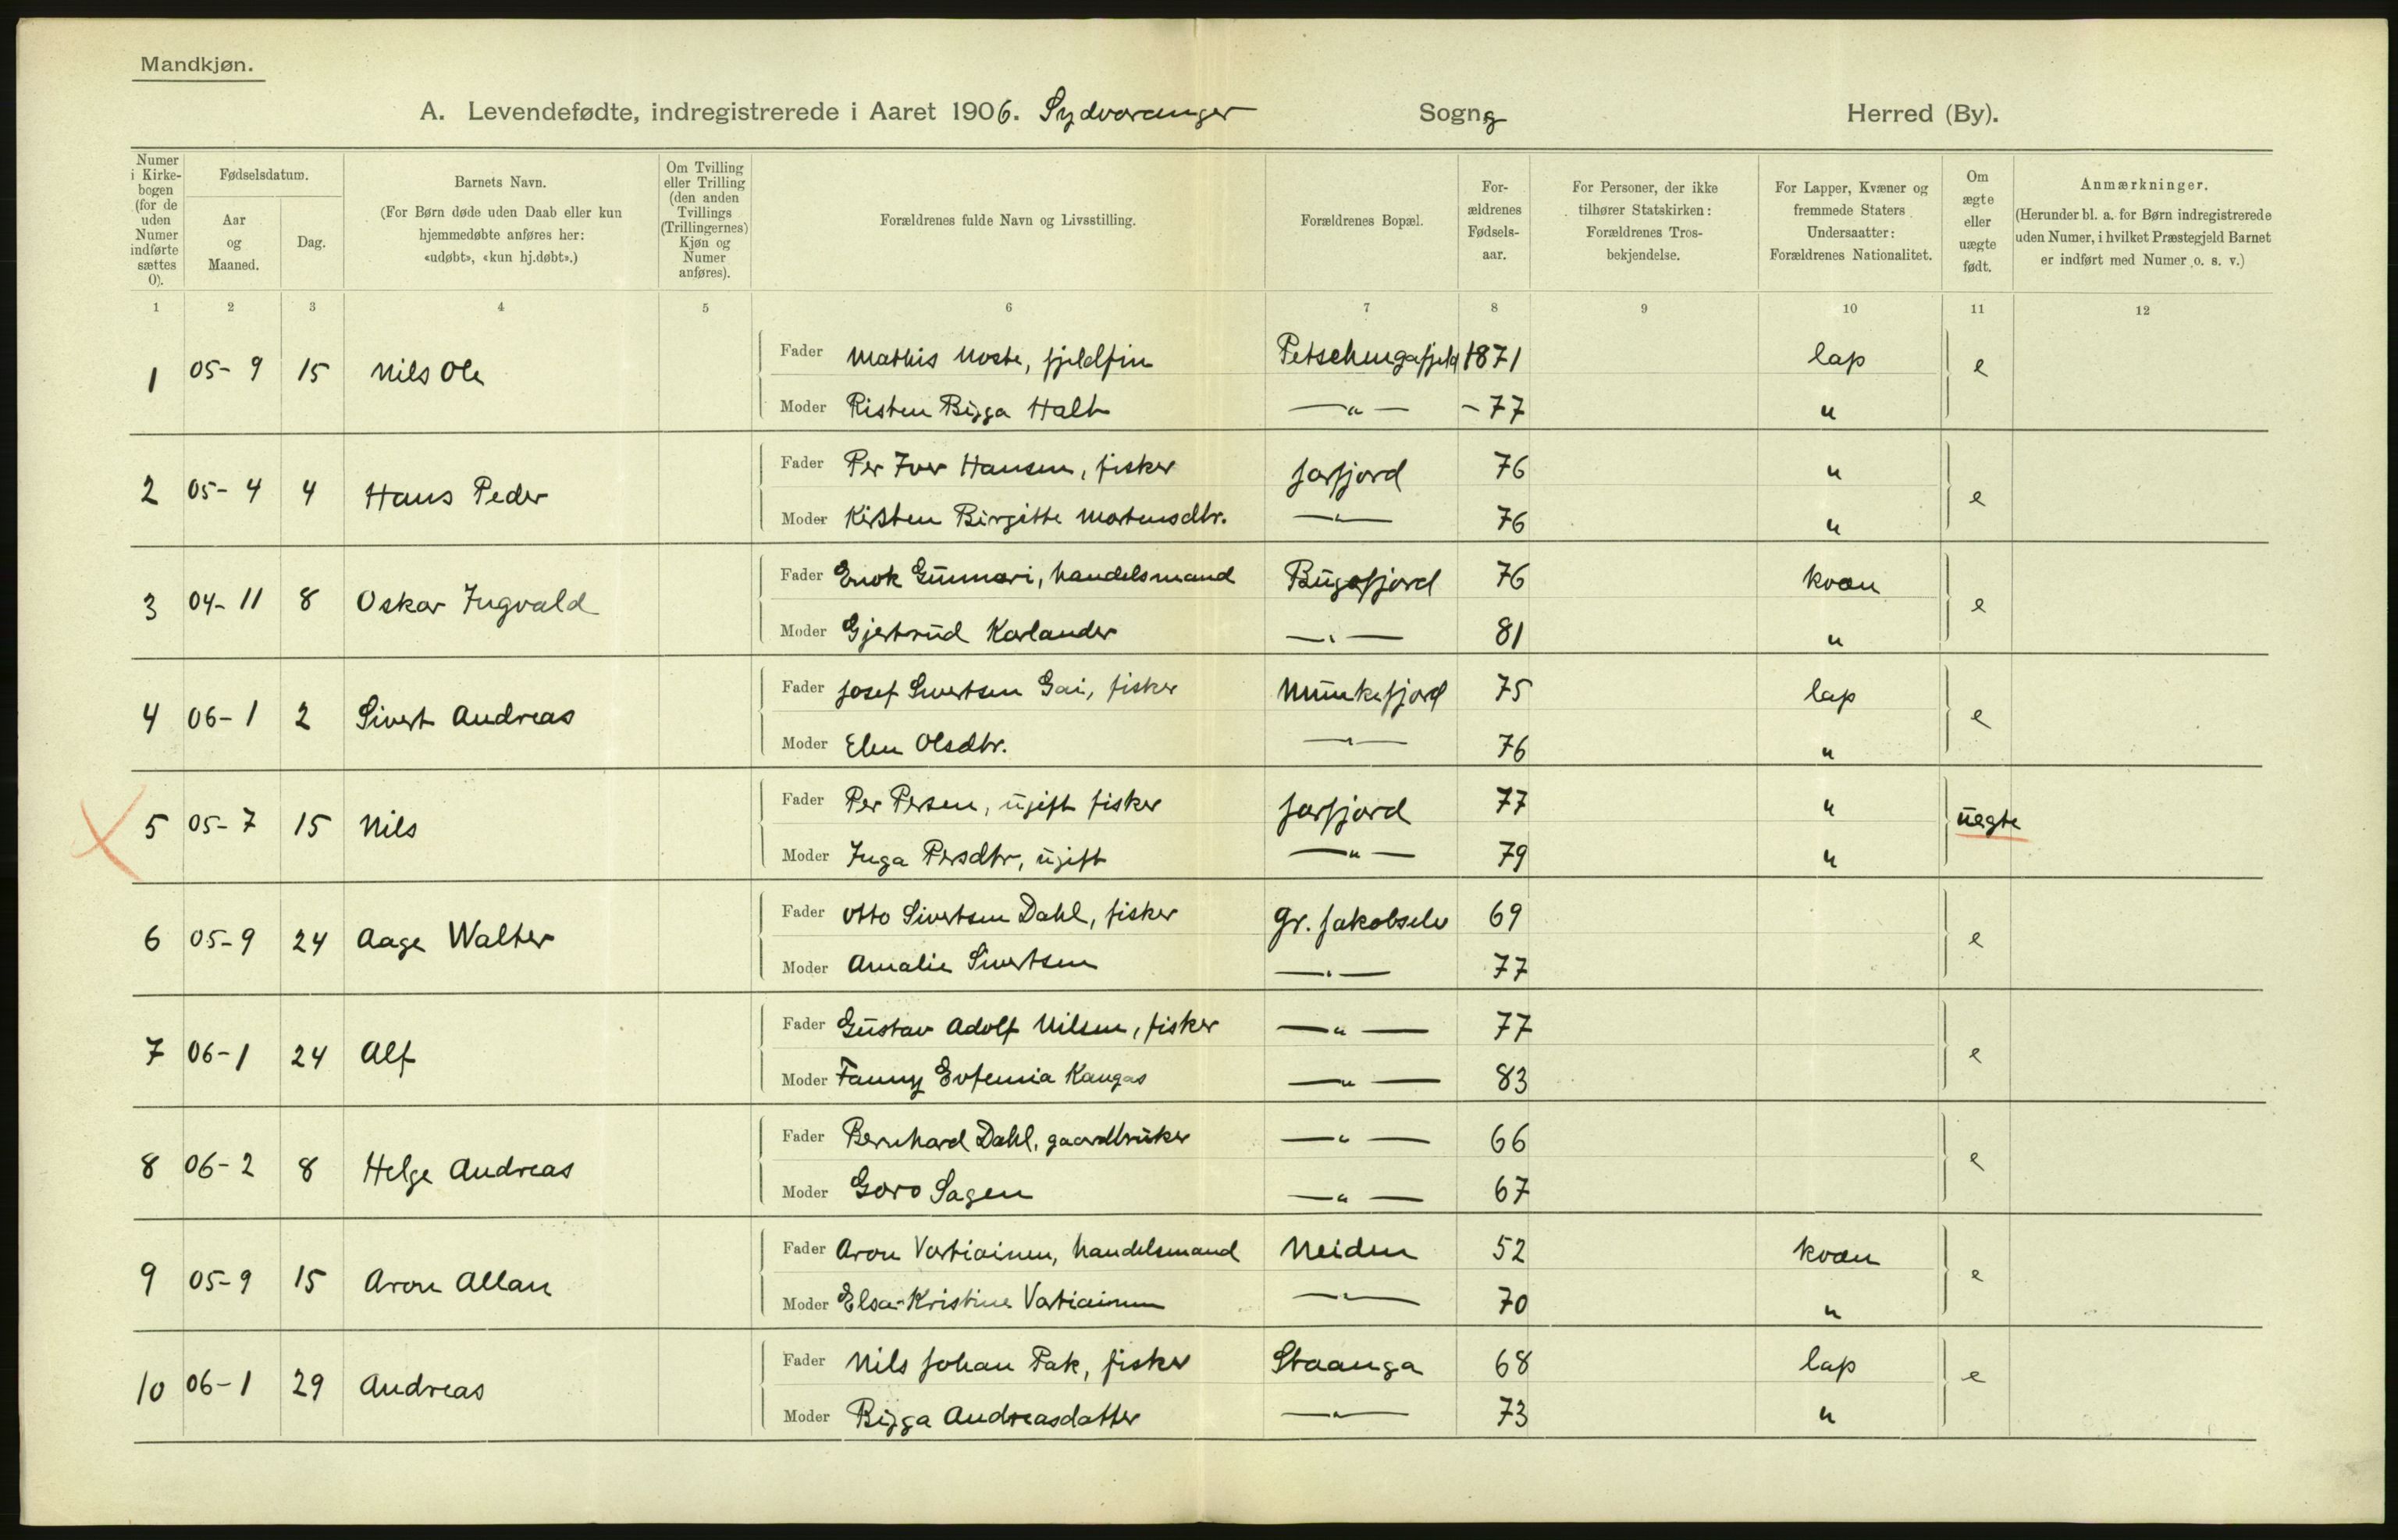 Mandkjøn.
A. Levendefødte, indregistrerede i Aaret 1906. Sydvaranger Sogn Herred (By).
Numer i Kirkebogen (for de uden Numer indførte sættes 0).
Fødselsdatum.
Aar og Maaned.
Dag.
Barnets Navn.
(For Børn døde uden Daab eller kun hjemmedøbte anføres her: «udøbt», «kun hj.døbt».)
Om Tvilling eller Trilling (den anden Tvillings (Trillingernes) Kjøn og Numer anføres).
Forældrenes fulde Navn og Livsstilling.
Forældrenes Bopæl.
Forældrenes Fødselsaar.
For Personer, der ikke tilhører Statskirken: Forældrenes Trosbekjendelse.
For Lapper, Kvæner og fremmede Staters Undersaatter: Forældrenes Nationalitet.
Om ægte eller uægte født.
Anmærkninger.
(Herunder bl. a. for Børn indregistrerede uden Numer, i hvilket Præstegjeld Barnet er indført med Numer o. s. v.)
1 2 3 4 5 6 7 8 9 10 11 12
1 05-9 15 Nils Ole e
Fader Mathis Noste, fjeldfin Petschengafjeld 1871 lap
Moder Risten Bigga Halt —"— -77 "
2 05-4 4 Hans Peder e
Fader Per Iver Hansen, fisker Jarfjord 76 "
Moder Kirsten Birgitte Mortensdtr. —"— 76 "
3 04-11 8 Oskar Ingvald e
Fader Enok Gunnari, handelsmand Bugøfjord 76 kvæn
Moder Gjertrud Karlander —"— 81 "
4 06-1 2 Sivert Andreas e
Fader Josef Sivertsen Gai, fisker Munkefjord 75 lap
Moder Elen Olsdtr. —"— 76 "
5 05-7 15 Nils uegte
Fader Per Persen, ugift fisker Jarfjord 77 "
Moder Inga Persdtr, ugift —"— 79 "
6 05-9 24 Aage Walter e
Fader Otto Sivertsen Dahl, fisker Gr. Jakobselv 69
Moder Amalie Sivertsen —"— 77
7 06-1 24 Alf e
Fader Gustav Adolf Nilsen, fisker —"— 77
Moder Fanny Evfemia Kangas —"— 83
8 06-2 8 Helge Andreas e
Fader Bernhard Dahl, gaardbruker —"— 66
Moder Goro Sagen —"— 67
9 05-9 15 Aron Allan e
Fader Aron Vartiainen, handelsmand Neiden 52 kvæn
Moder Elsa-Kristine Vartiainen —"— 70 "
10 06-1 29 Andreas e
Fader Nils Johan Pak, fisker Staanga 68 lap
Moder Bigga Andreasdatter —"— 73 "